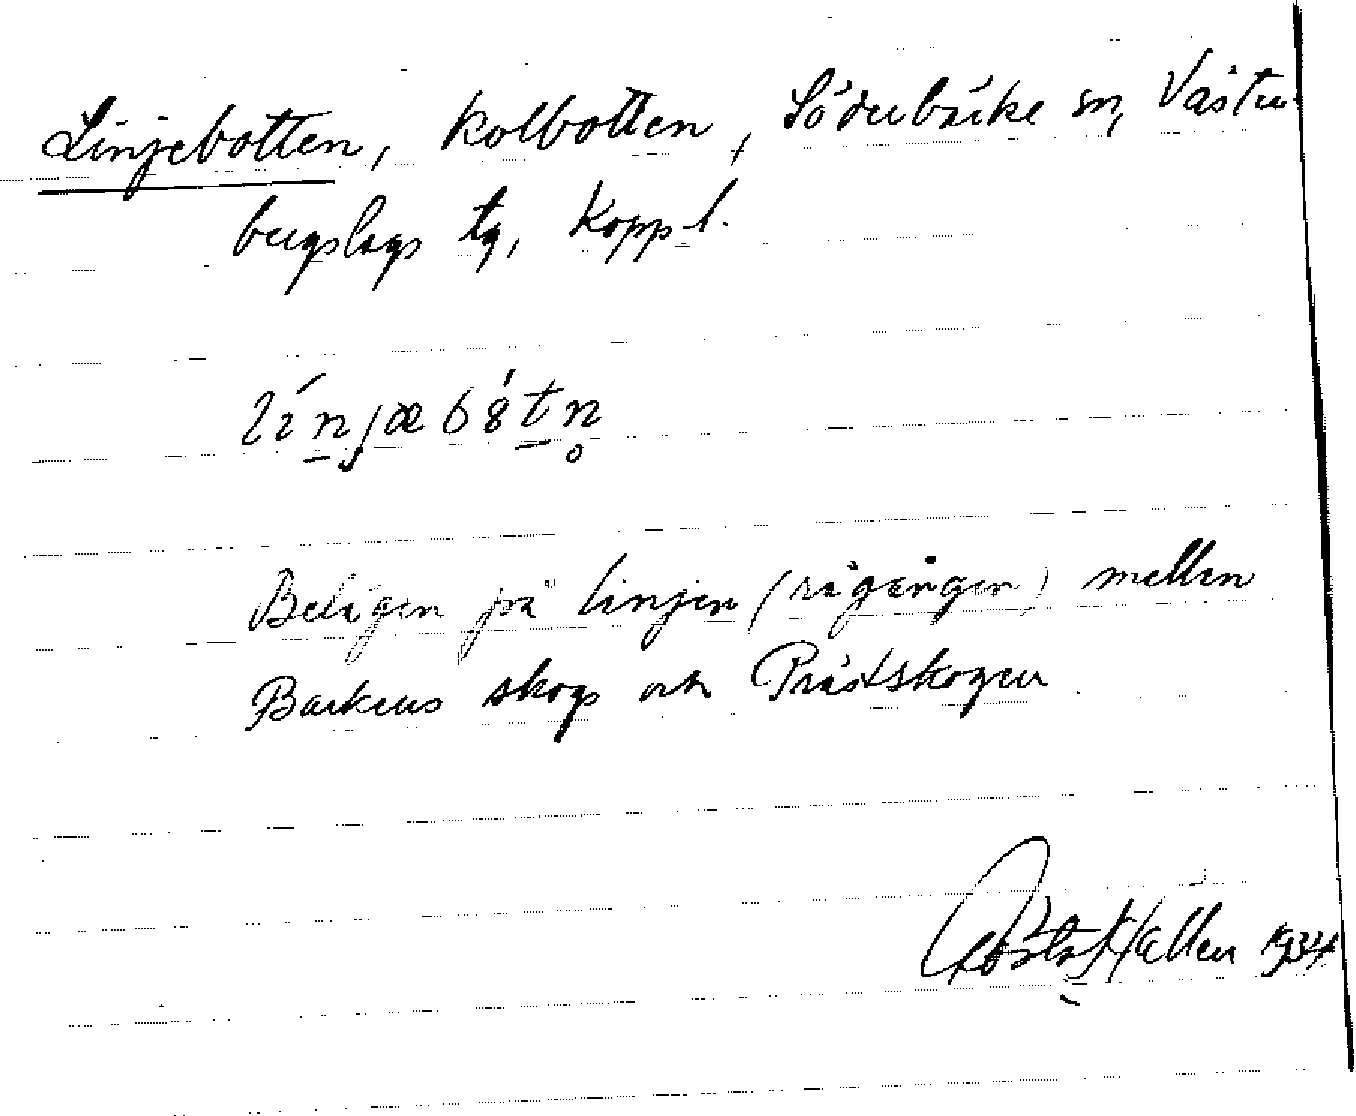 Linjebotten, kolbotten, Söderbärke sn, Väster-
bergslags tg, Kopp l.
Belägen på linjen (rågången) mellan
Barkens skogs och Prästskogen
Gösta Hallén 1934